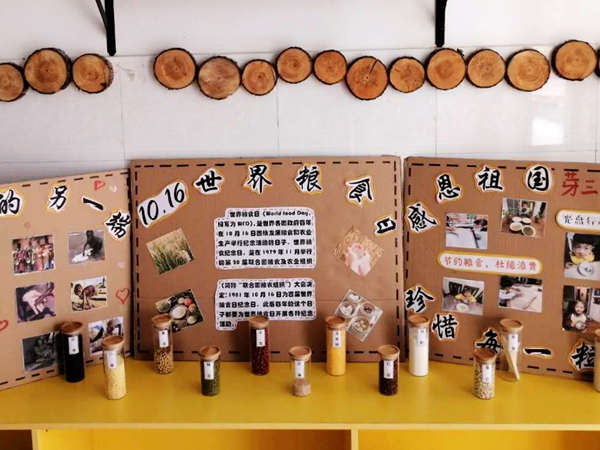 的另一
10.16世界粮食日
世界粮食日(World Food Day,
缩写为WFD),是世界各国政府每年
在10月16日围绕发展粮食和农业
生产举行纪念活动的日子。世界粮
食纪念日,是在1979年11月举行
的第20届联合国粮食及农业组织
(简称“联合国粮农组织”)大会决
定:1981年10月16日为首届世界
粮食日纪念日。此后每年的这个日
子都要为世界粮食日开展各种纪念
活动。
感恩祖国
芽三
节约粮食、杜绝浪费
光盘行
珍惜每一粒